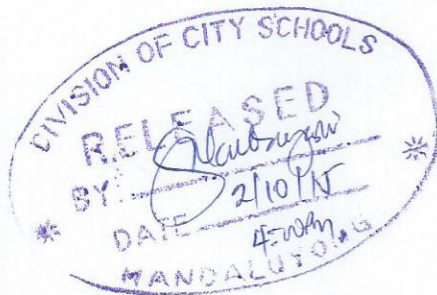 DIVISION OF CITY SCHOOLS
RELEASED
BY:
DATE 2/10/15
4:00pm
MANDALUYONG